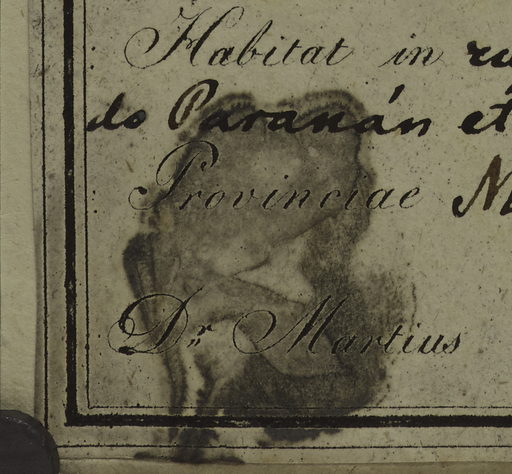 Habitat in
do Paranán et
Provinciae
Dr. Martius